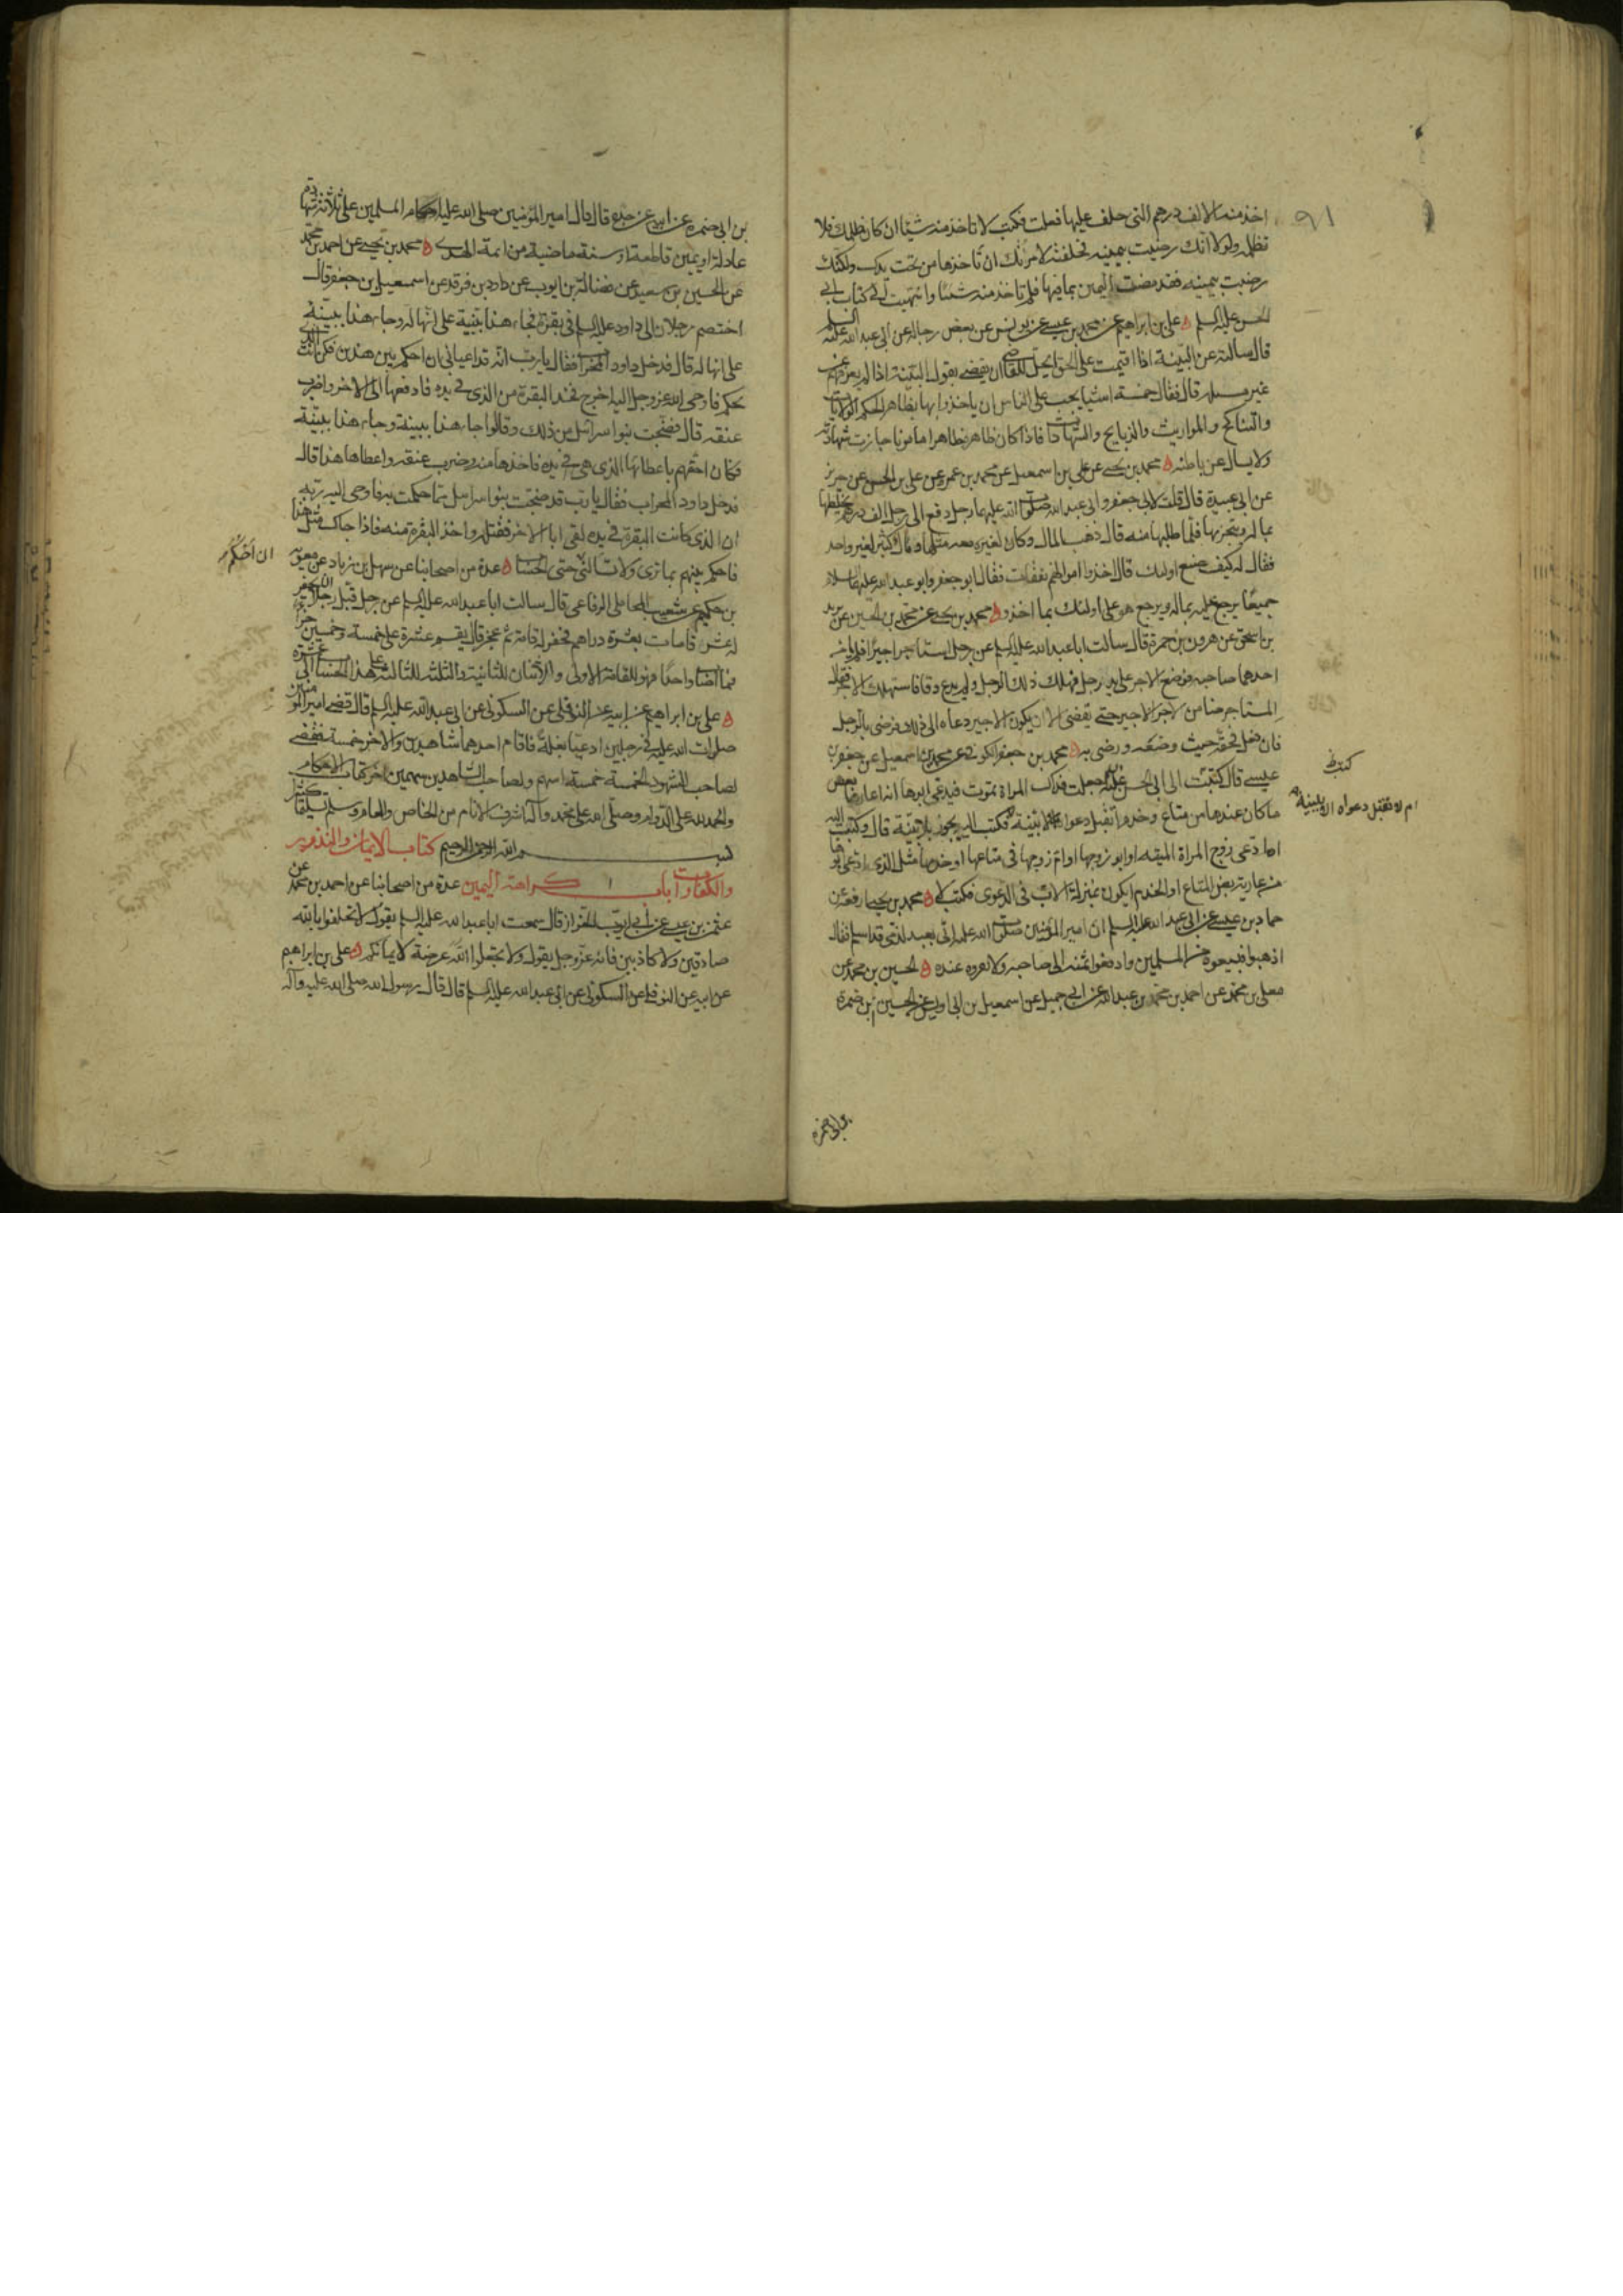 اخذ منه الالف درهم التي حلف عليها فعلت فكتب لا تاخذ منه شيئا ان كان ظلمك فلا
تظلمه ولولا انك رضيت بيمينه فحلفته لامرتك ان تاخذها من تحت يدك ولكنك
رضيت بيمينه فقد مضت اليمين بما فيها فلم تاخذ منه شيئا وانتهيت الى كتاب ابي
الحسن عليه السلم ه علي بن ابراهيم عن محمد بن عيسى عن يونس عن بعض رجاله عن ابي عبد الله عليه السلم
قال سالته عن البينة اذا اقيمت على الحق ايحل للقاضي ان يقضي بقول البينة اذا لم يعرفهم من
غير مسئلة قال فقال خمسة اشيا يجب على الناس ان ياخذوا بها بظاهر الحكم الولايات
والتناكح والمواريث والذبايح والشهادات فاذا كان ظاهره ظاهرا مامونا جازت شهادته
ولا يسال عن باطنه ه محمد بن يحيى عن علي بن اسمعيل عن محمد بن عمرو عن علي بن الحسن عن حريز
عن ابي عبيدة قال قلت لابي جعفر وابي عبد الله صلوات الله عليهما رجل دفع الى رجل الف درهم يخلطها
بماله ويتجر بها فلما طلبها منه قال ذهب المال وكان لغيره معه مثلها ومال كثير لغير واحد
فقال له كيف صنع اولئك قال اخذوا اموالهم نفقات فقال ابو جعفر وابو عبد الله عليهما السلام
جميعا يرجع عليه بماله ويرجع هو على اولئك بما اخذوا ه محمد بن يحيى عن محمد بن الحسين عن يزيد
بن اسحق عن هرون بن حمزة قال سالت ابا عبد الله عليه السلم عن رجل استاجر اجيرا فلم يامن
احدهما صاحبه فوضع الاجر على يد رجل فهلك ذلك الرجل ولم يدع وفاء فاستهلك الاجر فقال
المستاجر ضامن لاجر الاجير حتى يقضي الا ان يكون الاجير دعاه الى ذلك فرضي بالرجل
فان فعل فحقه حيث وضعه ورضي به ه محمد بن جعفر الكوفي عن محمد بن اسمعيل عن جعفر بن
عيسى قال كتبت الى ابي الحسن عليه السلم جعلت فداك المراة تموت فيدعي ابوها انه اعارها بعض
ما كان عندها من متاع وخدم اتقبل دعواه بلا بينة فكتب اليه يجوز بلا بينة قال وكتبت اليه
ان ادعى زوج المراة الميتة او ابو زوجها او ام زوجها في متاعها او خدمها مثل الذي ادعى ابوها
من عارية بعض المتاع او الخدم ايكون بمنزلة الاب في الدعوى فكتب لا ه محمد بن يحيى رفعه عن
حماد بن عيسى عن ابي عبد الله عليه السلم ان امير المؤمنين صلوات الله عليه اتي بعبد لذمي قد اسلم فقال
اذهبوا فبيعوه من المسلمين وادفعوا ثمنه الى صاحبه ولا تقروه عنده ه الحسين بن محمد عن
معلى بن محمد عن احمد بن محمد بن عبد الله عن ابي جميل عن اسمعيل بن ابي اويس عن الحسين بن ضمرة
ام لا تقبل دعواه الا ببينة
بن ابي ضمرة
٩١
بن ابي ضمرة عن ابيه عن جده قال قال امير المؤمنين صلى الله عليه احكام المسلمين على ثلاثة شهادة
عادلة او يمين قاطعة او سنة ماضية من ائمة الهدى ه محمد بن يحيى عن احمد بن محمد
عن الحسين بن سعيد عن فضالة بن ايوب عن داود بن فرقد عن اسمعيل بن جعفر قال
اختصم رجلان الى داود عليه السلم في بقرة فجاء هذا ببينة على انها له وجاء هذا ببينة
على انها له قال فدخل داود المحراب فقال يا رب انه قد اعياني ان احكم بين هذين فكن انت الذي
تحكم فاوحى الله عز وجل اليه اخرج فخذ البقرة من الذي في يده فادفعها الى الاخر واضرب
عنقه قال فضجت بنو اسرائيل من ذلك وقالوا جاء هذا ببينة وجاء هذا ببينة
فكان احقهم باعطائها الذي هي في يده فاخذها منه وضرب عنقه واعطاها هذا قال
فدخل داود المحراب فقال يا رب قد ضجت بنو اسرائيل مما حكمت به فاوحى اليه ربه
ان الذي كانت البقرة في يده لقي ابا الاخر فقتله واخذ البقرة منه فاذا جاك مثل هذا
فاحكم بينهم بما ترى ولا تسالني حتى الحساب ه عدة من اصحابنا عن سهل بن زياد عن معوية
بن حكيم عن شعيب المحاملي الرفاعي قال سالت ابا عبد الله عليه السلم عن رجل قبل رجلا يحفر
له عشر قامات بعشرة دراهم فحفر له قامة ثم عجز قال يقسم عشرة على خمسة وخمسين جزءا
فما اصاب واحدا فهو للقامة الاولى والاثنان للثانية والثلثة للثالثة على هذا الحساب الى عشرة
ه علي بن ابراهيم عن ابيه عن النوفلي عن السكوني عن ابي عبد الله عليه السلم قال قضى امير المؤمنين
صلوات الله عليه في رجلين ادعيا بغلة فاقام احدهما شاهدين والاخر خمسة فقضى
لصاحب الشهود الخمسة خمسة اسهم ولصاحب الشاهدين سهمين اخر كتاب الاحكام
والحمد لله على الدوام وصلى الله على محمد وآله اشرف الانام من الخاص والعام وسلم تسليما كثيرا
بسم الله الرحمن الرحيم كتاب الايمان والنذور
والكفارات باب ١ كراهة اليمين عدة من اصحابنا عن احمد بن محمد عن
عثمن بن عيسى عن ابي ايوب الخزاز قال سمعت ابا عبد الله عليه السلم يقول لا تحلفوا بالله
صادقين ولا كاذبين فانه عز وجل يقول ولا تجعلوا الله عرضة لايمانكم ه علي بن ابراهيم
عن ابيه عن النوفلي عن السكوني عن ابي عبد الله عليه السلم قال قال رسول الله صلى الله عليه وآله
ان احكم